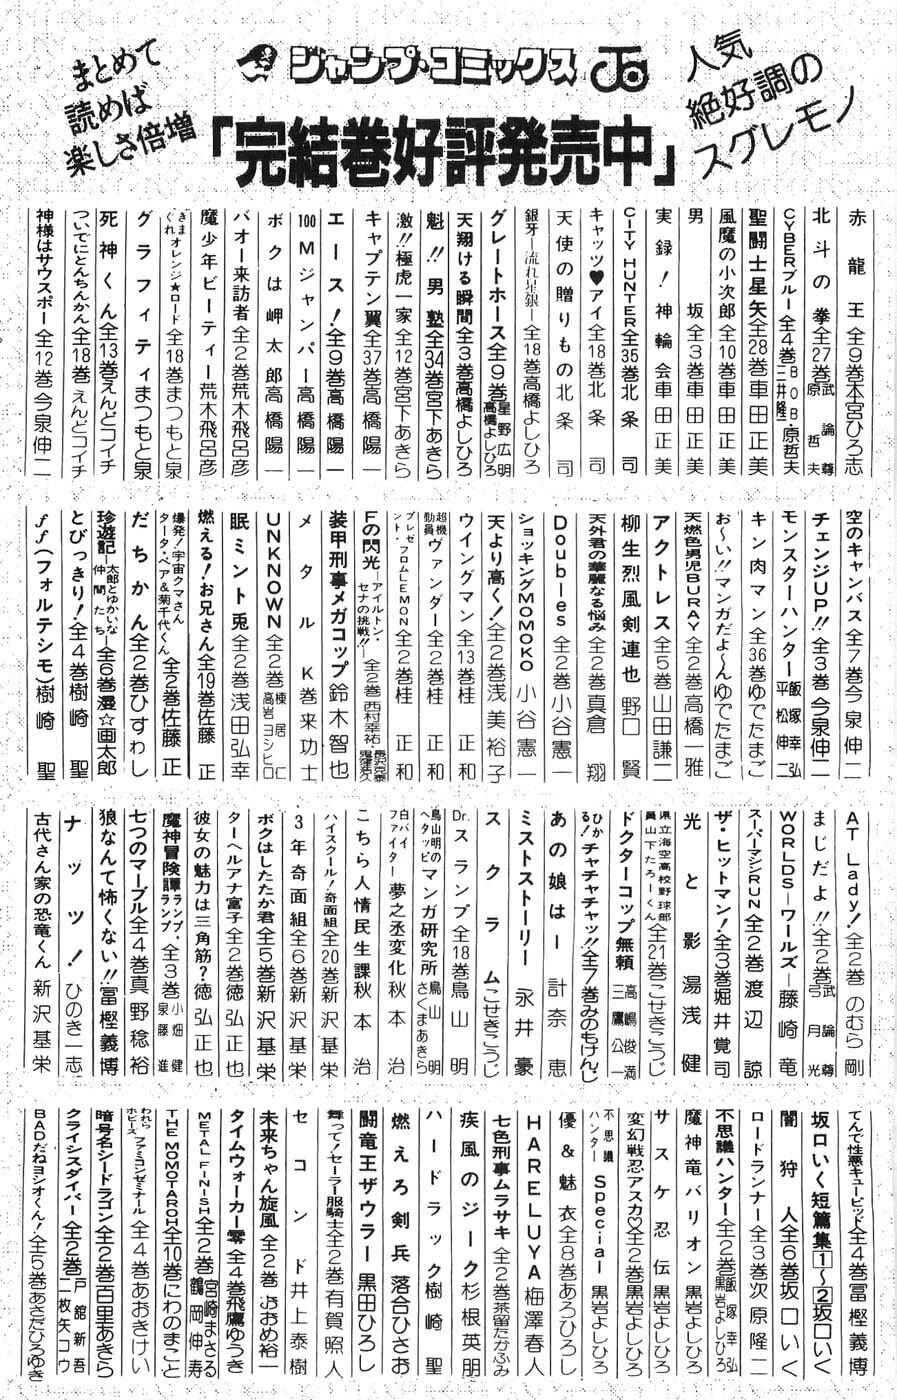 まとめて
読めば
楽しさ倍増
ジャンプ・コミックス
人気
絶好調の
スグレモノ
「完結巻好評発売中」
赤龍王 全9巻 本宮ひろ志
北斗の拳 全27巻 武論尊 原哲夫
CYBERブルー 全4巻 BOB・原哲夫 三井隆一
聖闘士星矢 全28巻 車田正美
風魔の小次郎 全10巻 車田正美
男坂 全3巻 車田正美
実録!神輪会 車田正美
CITY HUNTER 全35巻 北条司
キャッツ♥アイ 全18巻 北条司
天使の贈りもの 北条司
銀牙―流れ星銀― 全18巻 高橋よしひろ
グレートホース 全9巻 星野広明 高橋よしひろ
天翔ける瞬間 全3巻 高橋よしひろ
魁!!男塾 全34巻 宮下あきら
激!!極虎一家 全12巻 宮下あきら
キャプテン翼 全37巻 高橋陽一
エース! 全9巻 高橋陽一
100Mジャンパー 高橋陽一
ボクは岬太郎 高橋陽一
バオー来訪者 全2巻 荒木飛呂彦
魔少年ビーティー 荒木飛呂彦
きまぐれオレンジ★ロード 全18巻 まつもと泉
グラフィティ まつもと泉
死神くん 全13巻 えんどコイチ
ついでにとんちんかん 全18巻 えんどコイチ
神様はサウスポー 全12巻 今泉伸二
空のキャンバス 全7巻 今泉伸二
チェンジUP!! 全3巻 今泉伸二
モンスターハンター 飯塚幸弘 平松伸二
キン肉マン 全36巻 ゆでたまご
お〜い!!マンガだよ〜ん ゆでたまご
天燃色男児BURAY 全2巻 高橋一雅
アクトレス 全5巻 山田謙二
柳生烈風剣連也 野口賢
天外君の華麗なる悩み 全2巻 真倉翔
Doubles 全2巻 小谷憲一
ショッキングMOMOKO 小谷憲一
天より高く! 全2巻 浅美裕子
ウイングマン 全13巻 桂正和
超機動員ヴァンダー 全2巻 桂正和
プレゼント・フロムLEMON 全2巻 桂正和
Fの閃光 アイルトン・セナの挑戦!! 全2巻 西村幸祐・
装甲刑事メガコップ 鈴木智也
メタルK 巻来功士
UNKNOWN 全2巻 棟居仁 高岩ヨシヒロ
眠ミント兎 全2巻 浅田弘幸
燃える!お兄さん 全19巻 佐藤正
爆発!宇宙クマさん タータ・ベア&菊千代くん 全2巻 佐藤正
だちかん 全2巻 ひすわし
珍遊記 太郎とゆかいな仲間たち 全6巻 漫☆画太郎
とびっきり! 全4巻 樹崎聖
ff(フォルテシモ) 樹崎聖
AT Lady! 全2巻 のむら剛
まじだよ!! 全2巻 武論尊 弓月光
WORLDS―ワールズ― 藤崎竜
スーパーマシンRUN 全2巻 渡辺諒
ザ・ヒットマン! 全3巻 堀井覚司
光と影 湯浅健
県立海空高校野球部員山下たろーくん 全21巻 こせきこうじ
ドクターコップ無頼 高嶋俊満 三鷹公一
ひかる!チャチャチャッ!! 全7巻 みのもけんじ
あの娘は― 計奈恵
ミストストーリー 永井豪
スクラム こせきこうじ
Dr.スランプ 全18巻 鳥山明
鳥山明のヘタッピマンガ研究所 鳥山明 さくまあきら
白バイファイター夢之丞変化 秋本治
こちら人情民生課 秋本治
ハイスクール!奇面組 全20巻 新沢基栄
3年奇面組 全6巻 新沢基栄
ボクはしたたか君 全5巻 新沢基栄
ターヘルアナ富子 全2巻 徳弘正也
彼女の魅力は三角筋? 徳弘正也
魔神冒険譚ランプ・ランプ 全3巻 小畑健 泉藤進
七つのマーブル 全4巻 真野稔裕
狼なんて怖くない!! 冨樫義博
ナッツ! ひのき一志
古代さん家の恐竜くん 新沢基栄
てんで性悪キューピッド 全4巻 冨樫義博
坂口いく短篇集1〜2 坂口いく
闇狩人 全6巻 坂口いく
ロードランナー 全3巻 次原隆二
不思議ハンター 全2巻 飯塚幸弘 黒岩よしひろ
魔神竜バリオン 黒岩よしひろ
サスケ忍伝 黒岩よしひろ
変幻戦忍アスカ♡ 全2巻 黒岩よしひろ
不思議ハンターSpecial 黒岩よしひろ
優&魅衣 全8巻 あろひろし
HARELUYA 梅澤春人
七色刑事ムラサキ 全2巻 茶留たかふみ
疾風のジーク 杉根英明
ハードラック 樹崎聖
燃えろ剣兵 落合ひさお
闘竜王ザウラー 黒田ひろし
舞って!セーラー服騎士 全2巻 有賀照人
セコンド 井上泰樹
未来ちゃん旋風 全2巻 おおめ裕一
タイムウォーカー零 全4巻 飛鷹ゆうき
METAL FINISH 全2巻 宮崎まさる 鶴岡伸寿
THE MOMOTAROH 全10巻 にわのまこと
われらホビーズファミコンゼミナール 全4巻 あおきけい
暗号名シードラゴン 全2巻 百里あきら
クライシスダイバー 全2巻 戸舘新吾 二枚矢コウ
BADだねヨシオくん! 全5巻 あさだひろゆき